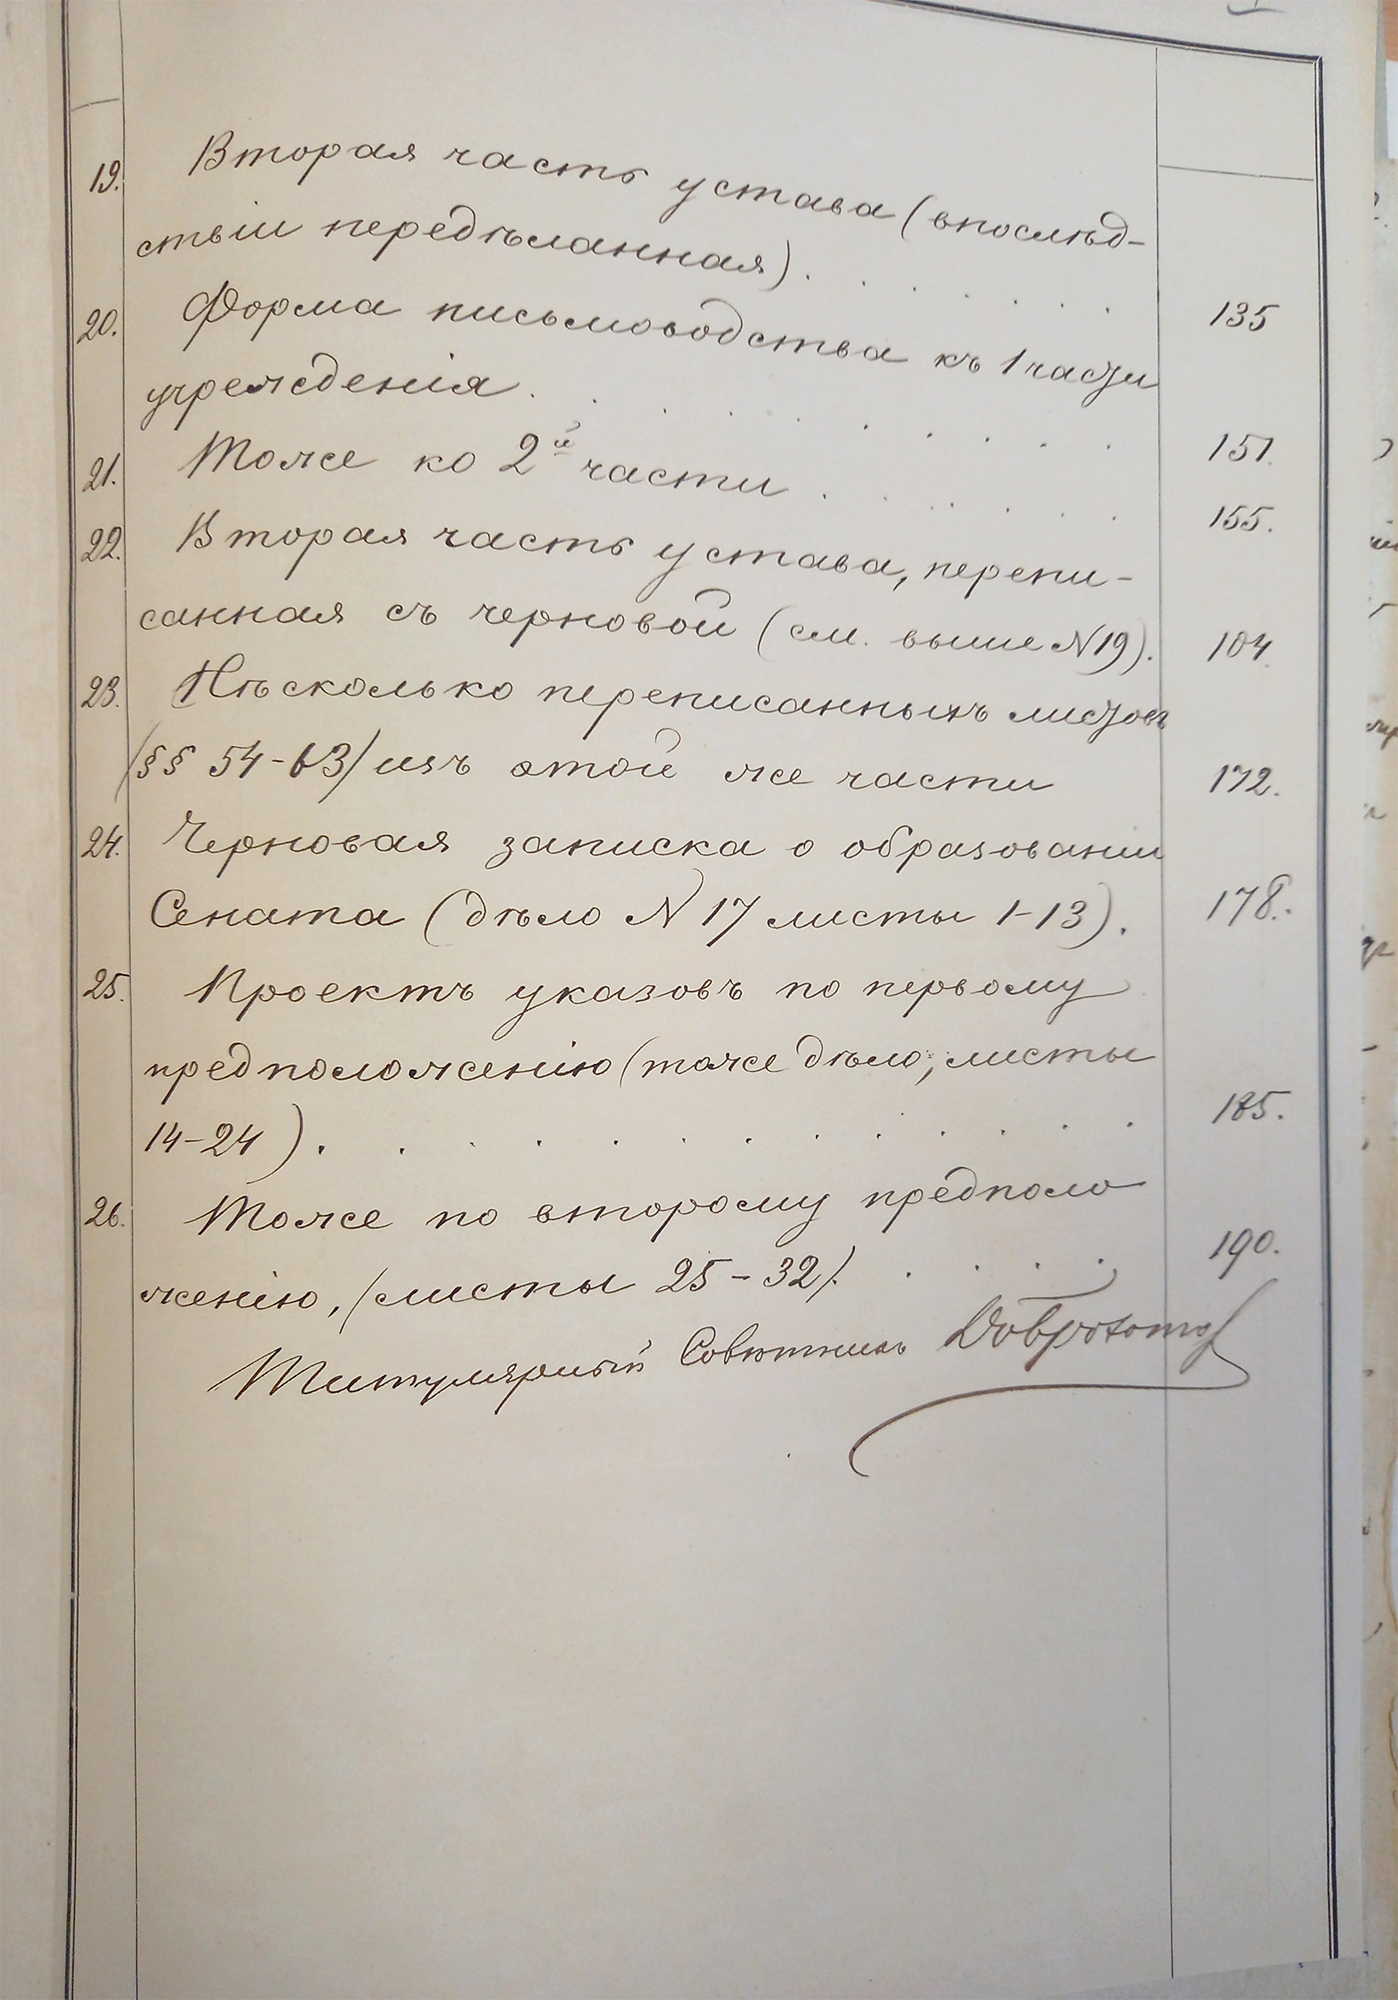 19. Вторая часть устава (впослѣд-
ствіи передѣланная) . . . . . . 135
20. Форма письмоводства къ 1 части
учрежденія . . . . . . . . . . 151.
21. Тоже ко 2й части . . . . . . 155.
22. Вторая часть устава, перепи-
санная съ черновой (см. выше N 19). 104.
23. Нѣсколько переписанныхъ листовъ
(§§ 54-63) изъ этой же части 172.
24. Черновая записка о образованіи
Сената (дѣло N 17 листы 1-13). 178.
25. Проектъ указовъ по первому
предположенію (тоже дѣло, листы
14-24) . . . . . . . . . . . . 185.
26. Тоже по второму предполо
женію, (листы 25-32). . . . . 190.
Титулярный Совѣтникъ